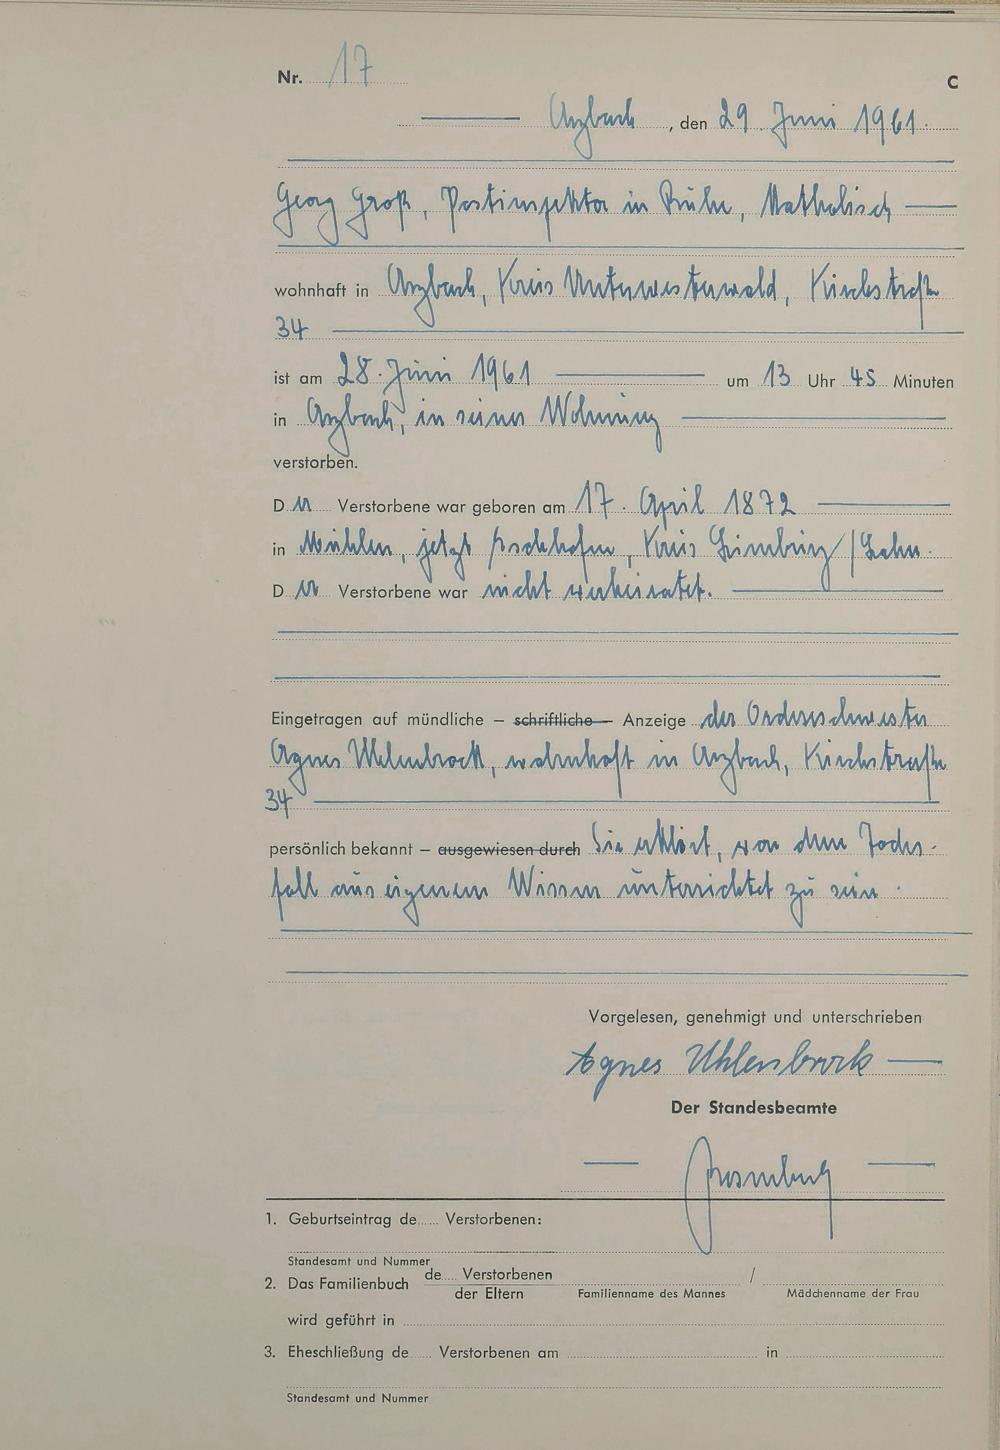 Nr. 17
C
Arzbach, den 29. Juni 1961.
Georg Groß, Postinspektor in Ruhe, katholisch
wohnhaft in Arzbach, Kreis Unterwesterwald, Kirchstraße
34
ist am 28. Juni 1961 um 13 Uhr 45 Minuten
in Arzbach, in seiner Wohnung
verstorben.
Der Verstorbene war geboren am 17. April 1872
in Mühlen, jetzt Eschhofen, Kreis Limburg/Lahn.
Der Verstorbene war nicht verheiratet.
Eingetragen auf mündliche – schriftliche – Anzeige der Ordensschwester
Agnes Uhlenbrock, wohnhaft in Arzbach, Kirchstraße
34
persönlich bekannt – ausgewiesen durch Sie erklärt, von dem Todes-
fall aus eigenem Wissen unterrichtet zu sein.
Vorgelesen, genehmigt und unterschrieben
Agnes Uhlenbrock
Der Standesbeamte
1. Geburtseintrag de Verstorbenen:
Standesamt und Nummer
2. Das Familienbuch de Verstorbenen /
der Eltern Familienname des Mannes Mädchenname der Frau
wird geführt in
3. Eheschließung de Verstorbenen am in
Standesamt und Nummer